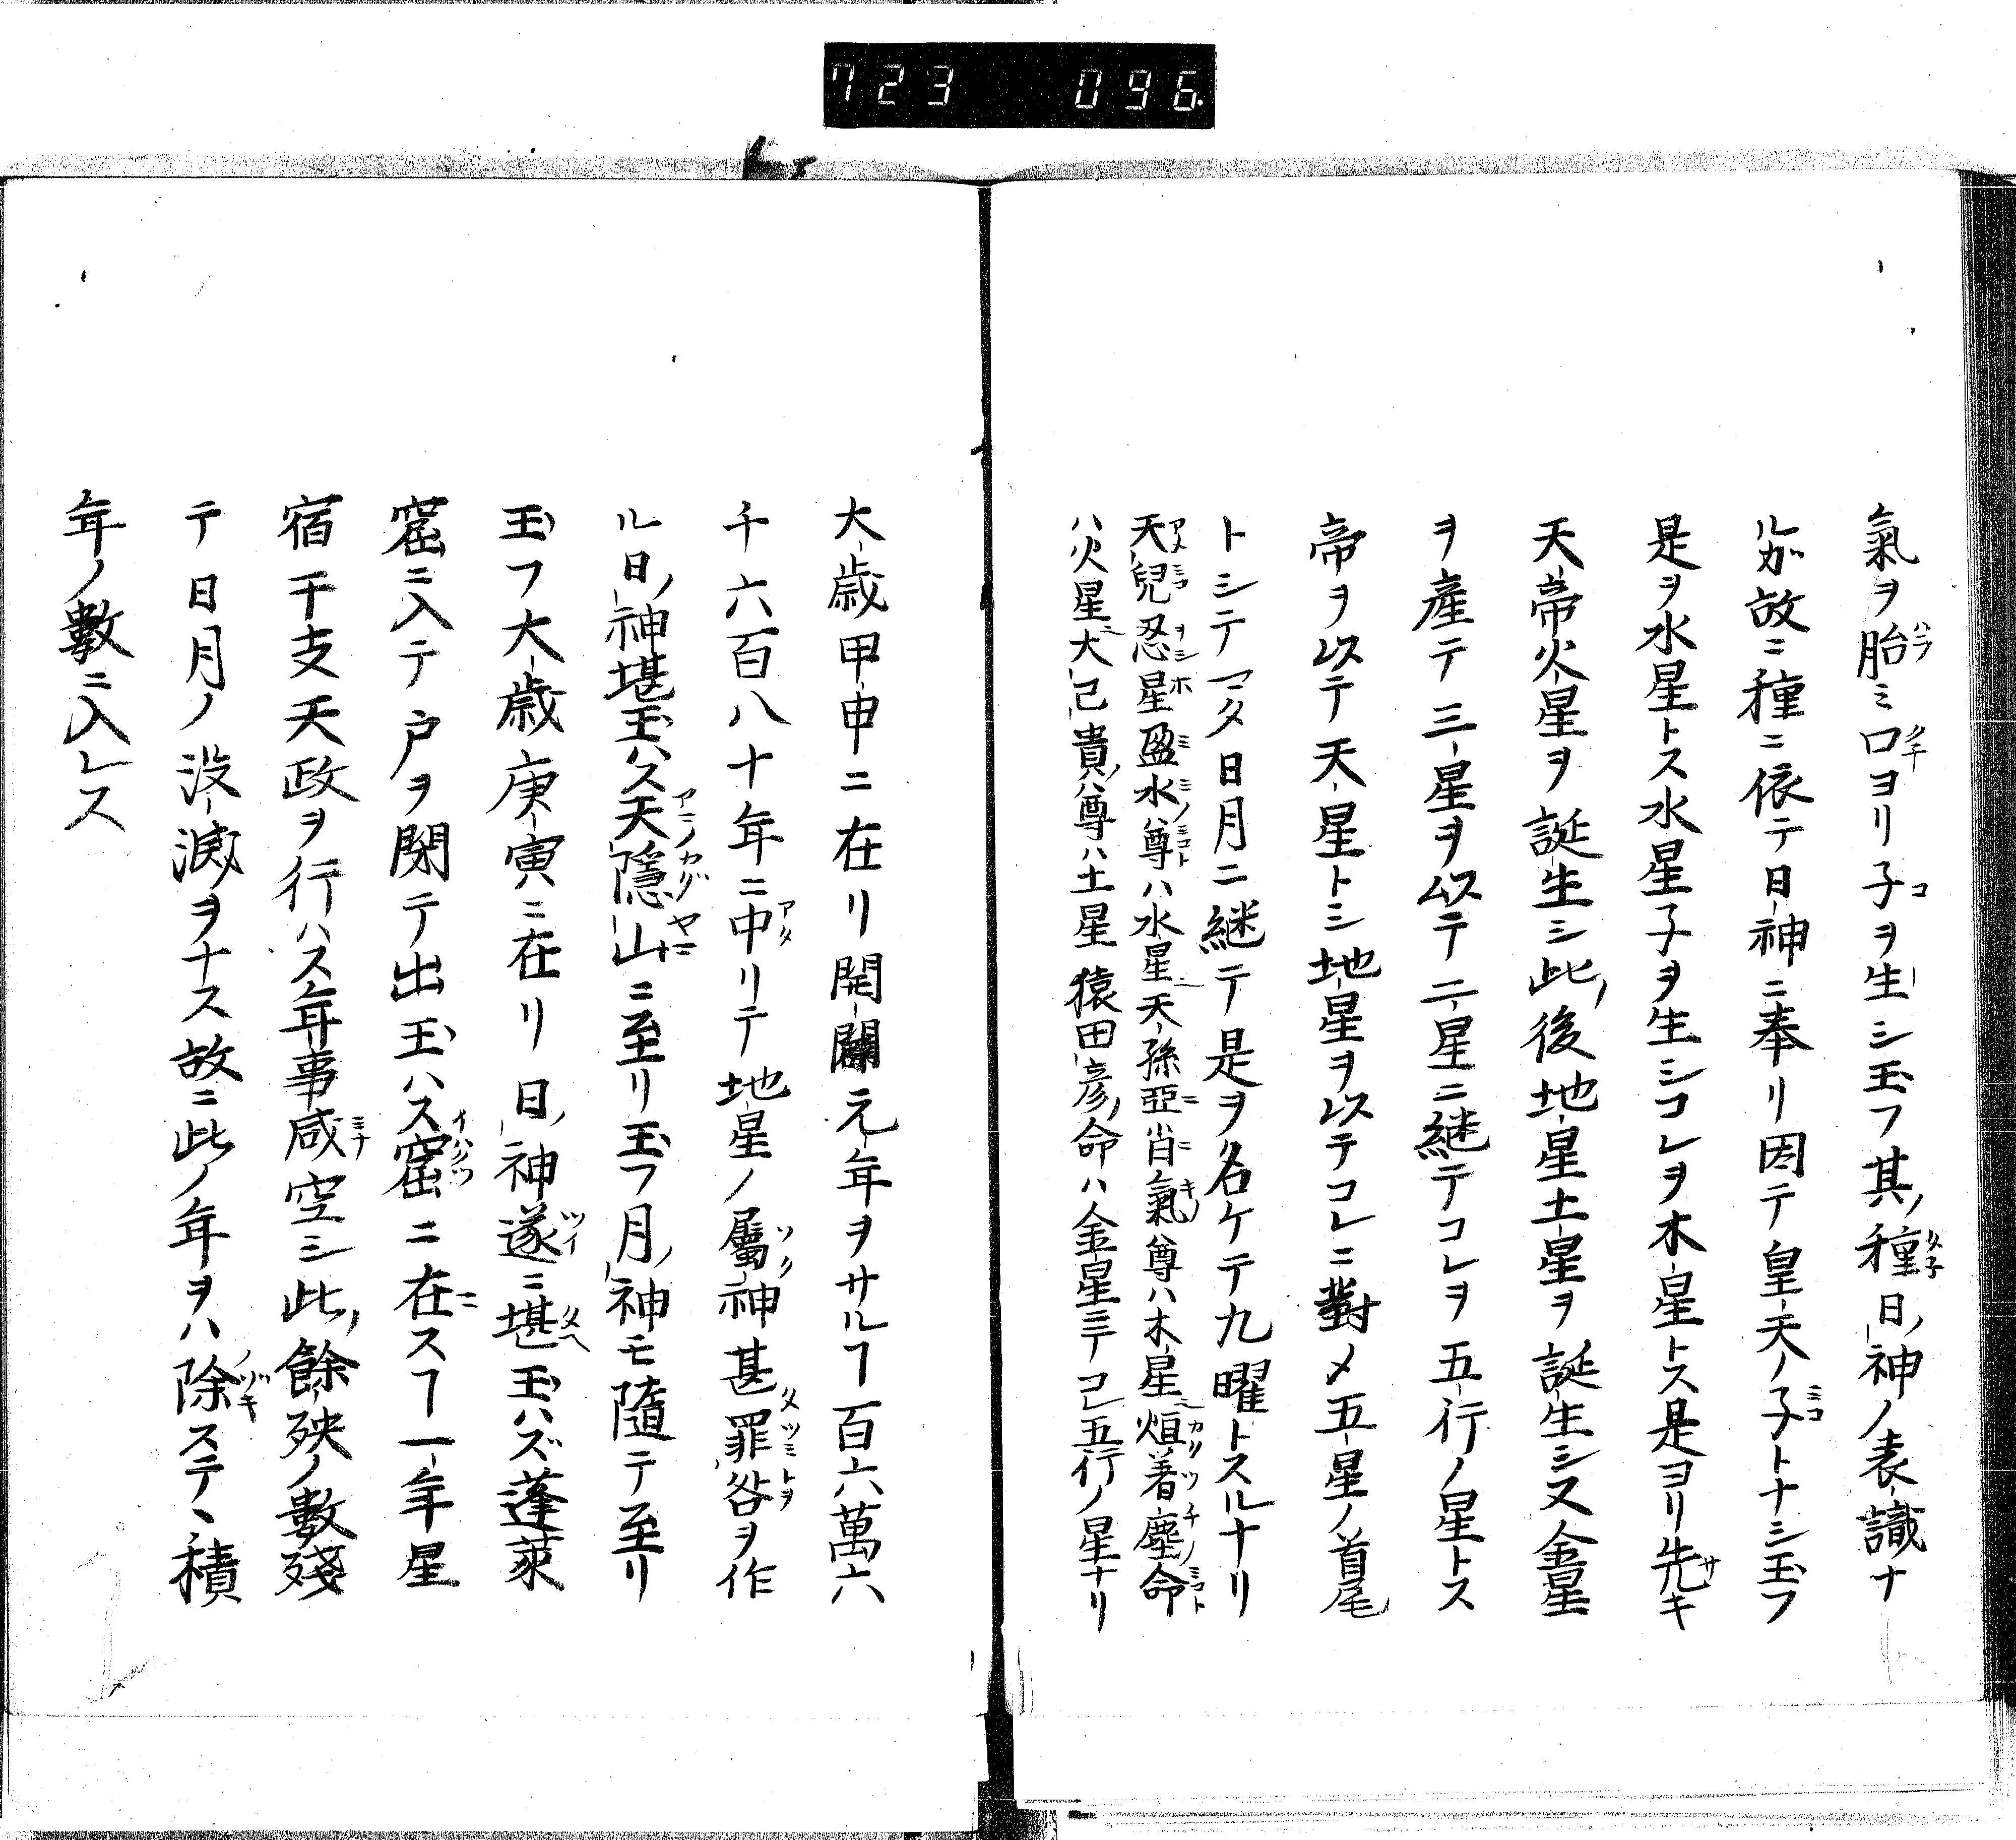 723 096
氣ヲ胎ミ口ヨリ子ヲ生シ玉フ其ノ種日ノ神ノ表識ナ
ルガ故ニ種ニ依テ日神ニ奉リ因テ皇天ノ子トナシ玉フ
是ヲ水星トス水星子ヲ生シコレヲ木星トス是ヨリ先キ
天帝火星ヲ誕生シ此ノ後地星土星ヲ誕生シ又金星
ヲ産テ三星ヲ以テ二星ニ継テコレヲ五行ノ星トス
帝ヲ以テ天星トシ地星ヲ以テコレニ對メ五星ノ首尾
トシテマタ日月ニ継テ是ヲ名ケテ九曜トスルナリ
天児忍星盈水尊ハ水星天孫亞肖氣尊ハ木星烜着塵命
ハ火星大己貴ノ尊ハ土星猿田彦ノ命ハ金星ニテコレ五行ノ星ナリ
大歳甲申ニ在リ開闢元年ヲサルヿ百六萬六
千六百八十年ニ中リテ地星ノ屬神甚罪咎ヲ作
ル日ノ神堪玉ハス天隱山ニ至リ玉フ月ノ神モ隨テ至リ
玉フ大歳庚寅ニ在リ日ノ神遂ニ堪玉ハズ蓬萊
窟ニ入テ戸ヲ閇テ出玉ハス窟ニ在スヿ一年星
宿干支天政ヲ行ハス年事咸空シ此ノ餘殃ノ數殘
テ日月ノ没滅ヲナス故ニ此ノ年ヲハ除ステヽ積
年ノ數ニ入レス